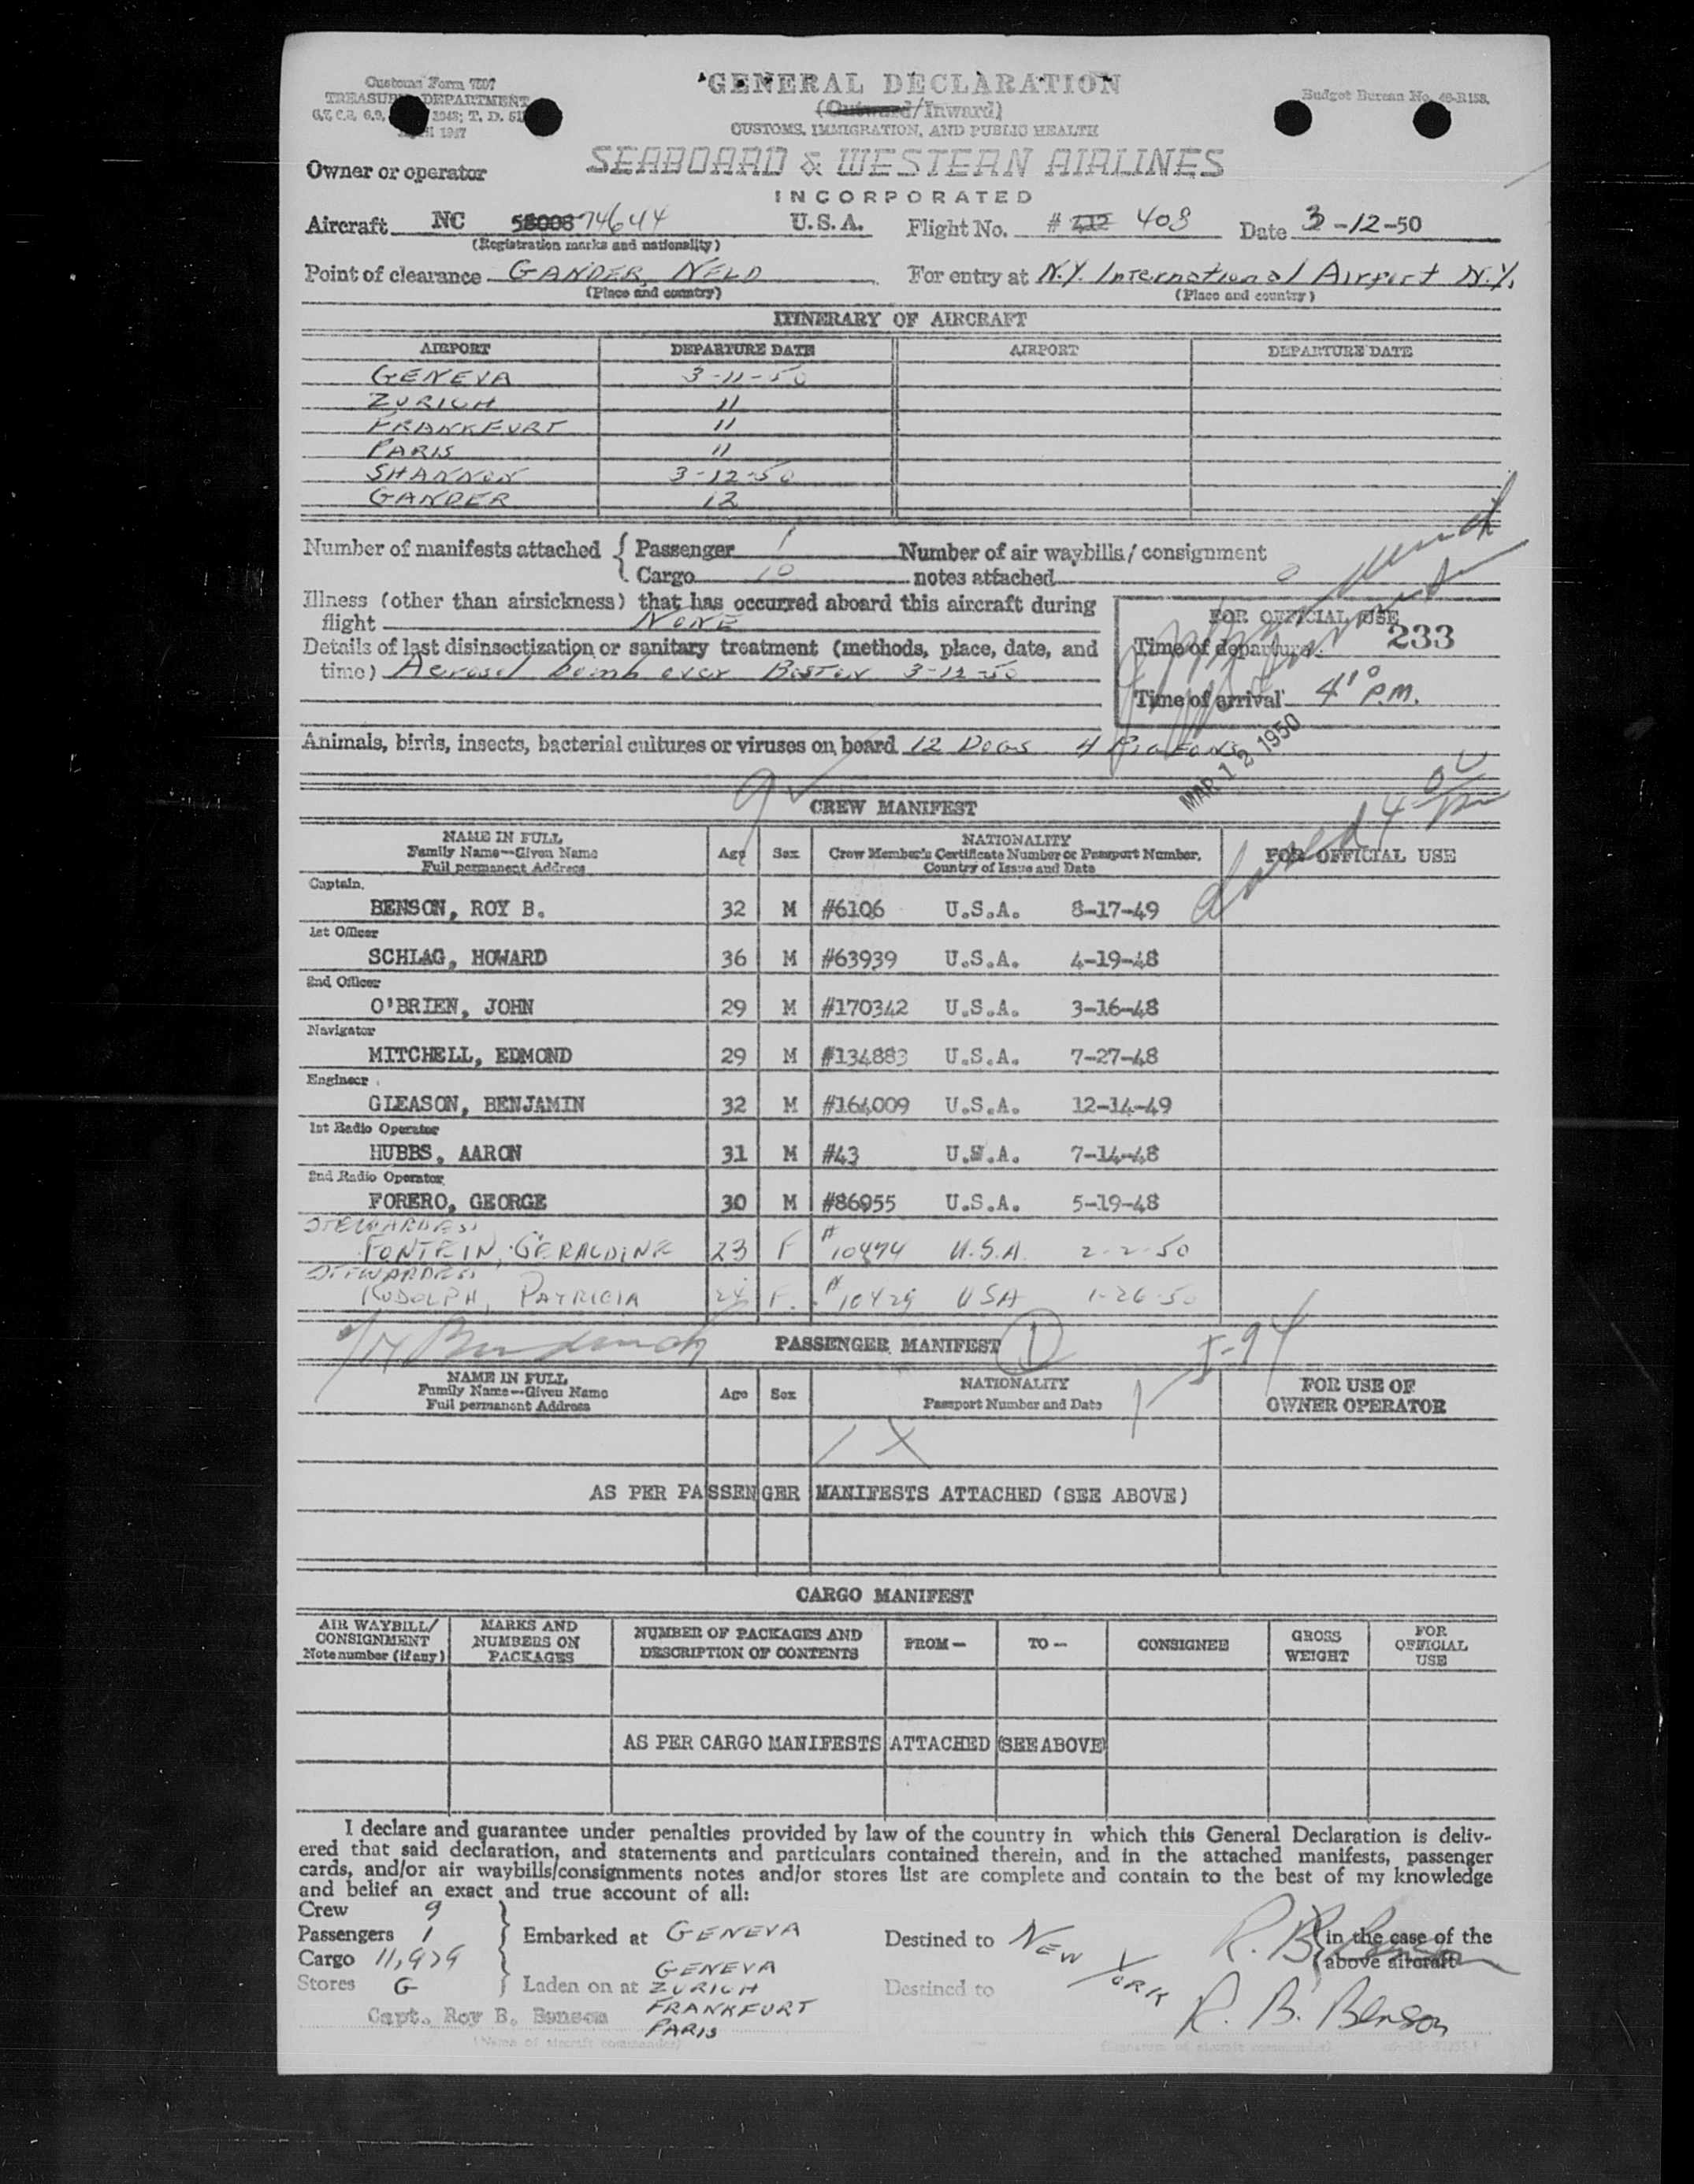 Customs Form 7507
TREASURY DEPARTMENT
1947
GENERAL DECLARATION
(Outward/Inward)
CUSTOMS, IMMIGRATION, AND PUBLIC HEALTH
Budget Bureau No. 48-R158.
SEABOARD & WESTERN AIRLINES
INCORPORATED
Owner or operator
Aircraft NC 58008 74644 U.S.A. Flight No. # 408 Date 3-12-50
(Registration marks and nationality)
Point of clearance GANDER, NFLD For entry at N.Y. International Airport N.Y.
(Place and country) (Place and country)
ITINERARY OF AIRCRAFT
AIRPORT DEPARTURE DATE AIRPORT DEPARTURE DATE
GENEVA 3-11-50
ZURICH 11
FRANKFURT 11
PARIS 11
SHANNON 3-12-50
GANDER 12
Number of manifests attached { Passenger 1 Number of air waybills/consignment
Cargo 10 notes attached 0
Illness (other than airsickness) that has occurred aboard this aircraft during
flight NONE
FOR OFFICIAL USE
233
Details of last disinsectization or sanitary treatment (methods, place, date, and
time) Aerosol bomb over Boston 3-12-50
Time of departure
Time of arrival 4 10 P.M.
Animals, birds, insects, bacterial cultures or viruses on board 12 Dogs 4 Pigeons
MAR 12 1950
9
CREW MANIFEST
NAME IN FULL
Family Name—Given Name
Full permanent Address
Age Sex
NATIONALITY
Crew Member's Certificate Number or Passport Number,
Country of Issue and Date
FOR OFFICIAL USE
Captain.
BENSON, ROY B. 32 M #6106 U.S.A. 8-17-49
1st Officer
SCHLAG, HOWARD 36 M #63939 U.S.A. 4-19-48
2nd Officer
O'BRIEN, JOHN 29 M #170342 U.S.A. 3-16-48
Navigator
MITCHELL, EDMOND 29 M #134883 U.S.A. 7-27-48
Engineer
GLEASON, BENJAMIN 32 M #164009 U.S.A. 12-14-49
1st Radio Operator
HUBBS, AARON 31 M #43 U.S.A. 7-14-48
2nd Radio Operator
FORERO, GEORGE 30 M #86955 U.S.A. 5-19-48
STEWARDESS
FONTEIN, GERALDINE 23 F #10474 U.S.A. 2-2-50
STEWARDESS
RUDOLPH, PATRICIA 24 F. #10429 USA 1-26-50
PASSENGER MANIFEST 1
I-94
NAME IN FULL
Family Name—Given Name
Full permanent Address
Age Sex
NATIONALITY
Passport Number and Date
FOR USE OF
OWNER OPERATOR
AS PER PASSENGER MANIFESTS ATTACHED (SEE ABOVE)
CARGO MANIFEST
AIR WAYBILL/
CONSIGNMENT
Note number (if any)
MARKS AND
NUMBERS ON
PACKAGES
NUMBER OF PACKAGES AND
DESCRIPTION OF CONTENTS
FROM—
TO—
CONSIGNEE
GROSS
WEIGHT
FOR
OFFICIAL
USE
AS PER CARGO MANIFESTS ATTACHED (SEE ABOVE)
I declare and guarantee under penalties provided by law of the country in which this General Declaration is deliv-
ered that said declaration, and statements and particulars contained therein, and in the attached manifests, passenger
cards, and/or air waybills/consignments notes and/or stores list are complete and contain to the best of my knowledge
and belief an exact and true account of all:
Crew 9
Passengers 1 Embarked at GENEVA Destined to NEW YORK in the case of the
above aircraft
Cargo 11,979
Stores G Laden on at GENEVA ZURICH FRANKFURT PARIS Destined to
R. B. Benson
Capt. Roy B. Benson R. B. Benson
(Name of aircraft commander) (Signature of aircraft commander)